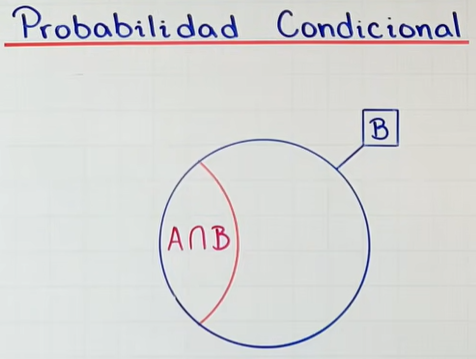 Probabilidad Condicional
B
A∩B